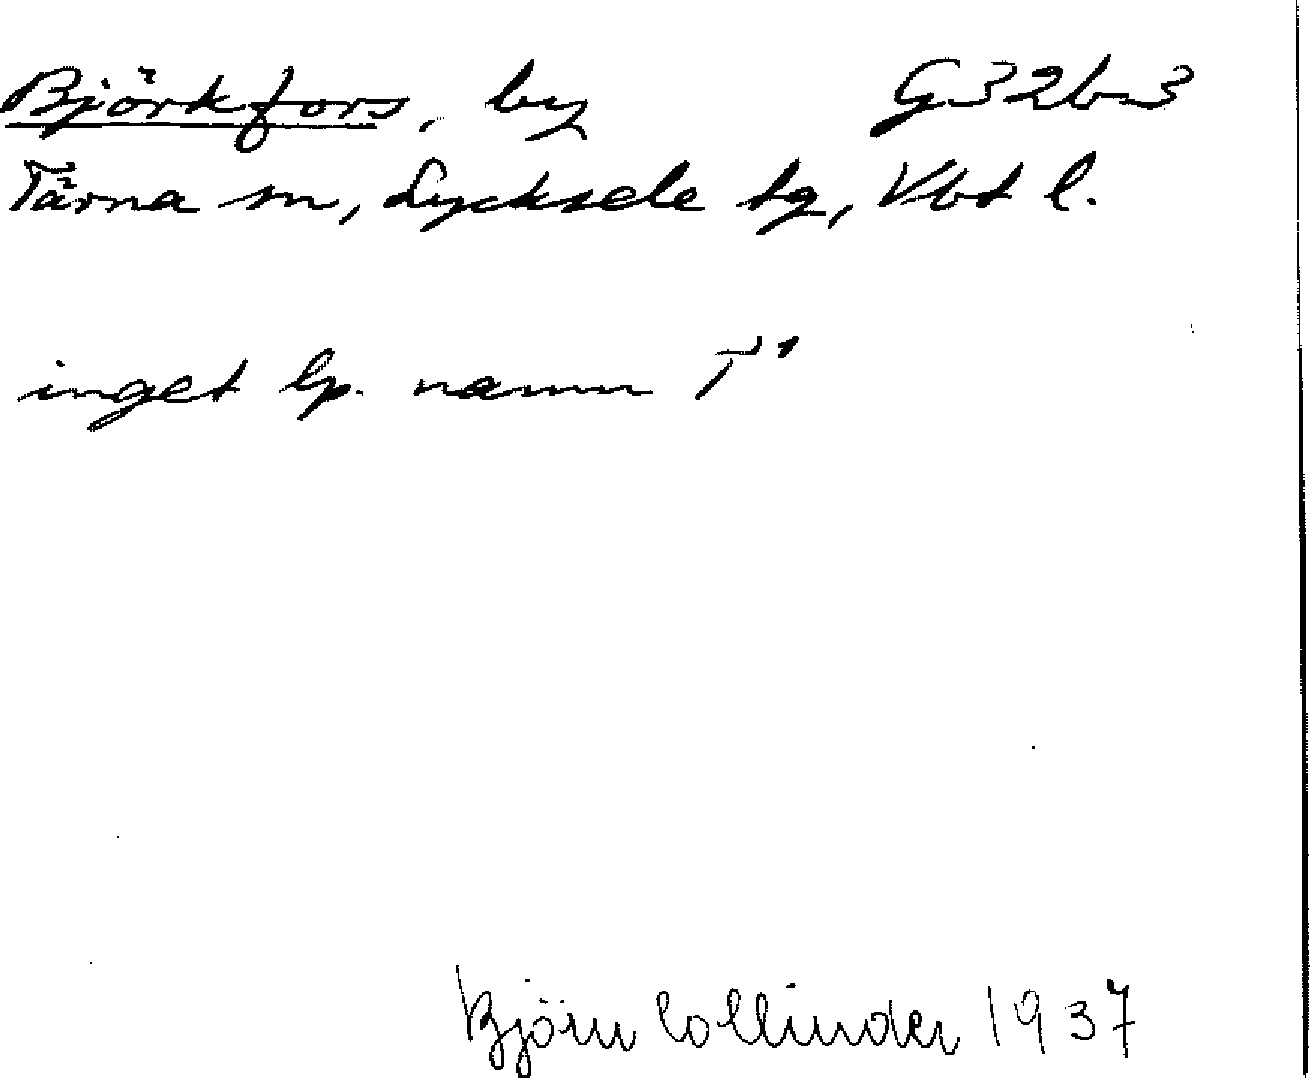 Björkfors, by G32b3
Tärna sn, Lycksele tg, Vbt l.
inget lp. namn T¹
Björn Collinder 1937